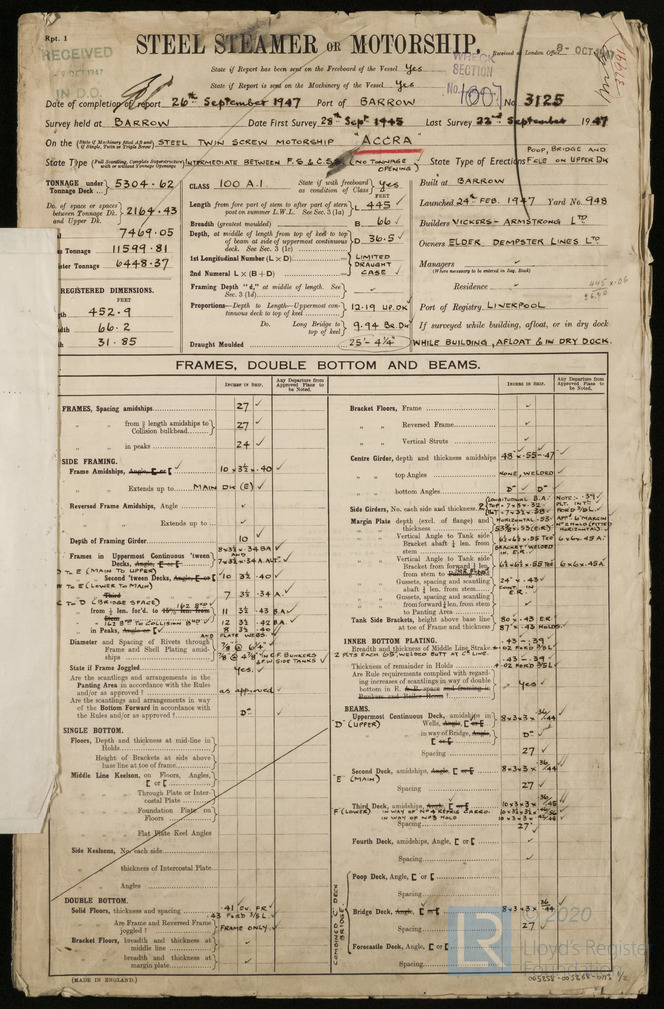 Rpt. 1
RECEIVED
OCT 1947
IN D.O.
STEEL STEAMER OR MOTORSHIP.
Received at London Office 8- OCT 1947
WRECK SECTION
No. 1007
State if Report has been sent on the Freeboard of the Vessel Yes
State if Report is sent on the Machinery of the Vessel Yes
Date of completion of report 26th September 1947 Port of BARROW No. 3125
Survey held at BARROW Date First Survey 28th Sept 1945 Last Survey 22nd September 1947
On the (State if Machinery fitted Aft and if Single, Twin or Triple Screw) STEEL TWIN SCREW MOTORSHIP "ACCRA"
State Type (Full Scantling, Complete Superstructure with or without Tonnage Openings) INTERMEDIATE BETWEEN F.S. & C.S.S. (NO TONNAGE OPENING)
State Type of Erections POOP, BRIDGE AND F'CLE ON UPPER DK
TONNAGE under Tonnage Deck ... 5304.62
Do. of space or spaces between Tonnage Dk. and Upper Dk. 2164.43
7469.05
Tonnage 11599.81
Tonnage 6448.37
REGISTERED DIMENSIONS.
FEET
452.9
66.2
31.85
CLASS 100 A.1. State if with freeboard as condition of Class Yes
FEET
Length from fore part of stem to after part of stern post on summer L.W.L. See Sec. 3 (1a) L 445
Breadth (greatest moulded) B 66
Depth, at middle of length from top of keel to top of beam at side of uppermost continuous deck. See Sec. 3 (1c) D 36.5
1st Longitudinal Number (L x D)
2nd Numeral L x (B + D)
LIMITED DRAUGHT CASE
Framing Depth "d," at middle of length. See Sec. 3 (1d)
Proportions—Depth to Length—Uppermost continuous deck to top of keel 12.19 UP. DK
Do. Long Bridge to top of keel 9.94 BR. DK
Draught Moulded 25'- 4¼"
Built at BARROW
Launched 24th FEB. 1947 Yard No. 948
Builders VICKERS-ARMSTRONG LTD
Owners ELDER DEMPSTER LINES LTD
Managers
(Where necessary to be entered in Reg. Book)
Residence
Port of Registry LIVERPOOL
If surveyed while building, afloat, or in dry dock
WHILE BUILDING, AFLOAT & IN DRY DOCK.
FRAMES, DOUBLE BOTTOM AND BEAMS.
INCHES IN SHIP.
Any Departure from Approved Plans to be Noted.
FRAMES, Spacing amidships 27
" " from ⅗ length amidships to Collision bulkhead 27
" " in peaks 24
SIDE FRAMING.
Frame Amidships, Angle, [ or [ 10 x 3½ x .40
" " Extends up to MAIN DK (E)
Reversed Frame Amidships, Angle
" " Extends up to
Depth of Framing Girder 10
Frames in Uppermost Continuous 'tween Decks, Angle, [ or [ 8x3½x.34 BA AND 7x3½x.34 A. ALT.
D TO E (MAIN TO UPPER)
" Second 'tween Decks, Angle, [ or [ 10 3½ .40
E (LOWER TO MAIN)
" Third " " " " 7 3½ .34 A.
C TO D (BRIDGE SPACE)
" from ⅕ len. for'd. to 15% len. from Stem 11 3½ .43 B.A.
162 BHD TO COLLISION BHD 12 3½ .42 B.A.
" in Peaks, Angle or [ 8 3½ .40
AND PLATE WEBS.
Diameter and Spacing of Rivets through Frame and Shell Plating amidships
State if Frame Joggled Yes.
Are the scantlings and arrangements in the Panting Area in accordance with the Rules and/or as approved? as approved
Are the scantlings and arrangements in way of the Bottom Forward in accordance with the Rules and/or as approved? Do
SINGLE BOTTOM.
Floors, Depth and thickness at mid-line in Holds
" Height of Brackets at side above base line at toe of frame
Middle Line Keelson, on Floors, Angles, [ or [
" " Through Plate or Intercostal Plate
" " Foundation Plate on Floors
" " Flat Plate Keel Angles
Side Keelsons, No. each side
" " thickness of Intercostal Plate
" " Angles
DOUBLE BOTTOM.
Solid Floors, thickness and spacing .41 EV. FR.
.43 FOR'D 3/5 L.
" " Are Frame and Reversed Frame joggled? FRAME ONLY.
Bracket Floors, breadth and thickness at middle line
" " breadth and thickness at margin plate
Bracket Floors, Frame
" " Reversed Frame
" " Vertical Struts
Centre Girder, depth and thickness amidships 48 x .55-.47
" " top Angles NONE, WELDED
" " bottom Angles Do Do
Side Girders, No. each side and thickness 2
Margin Plate depth (excl. of flange) and thickness
" " Vertical Angle to Tank side Bracket abaft ¼ len. from stem
" " Vertical Angle to Tank side Bracket forward ¼ len. from stem 6x6x.45 A
" " Gussets, spacing and scantling abaft ¼ len. from stem 24 x .43
" " Gussets, spacing and scantling forward ¼ len. from stem to Panting Area
Tank Side Brackets, height above base line at toe of Frame and thickness 80 x .43 E.R.
87 x .43 HOLDS
INNER BOTTOM PLATING.
Breadth and thickness of Middle Line Strake .43 - .39
2 PLTS EACH 65", WELDED BUTT AT C. LINE.
Thickness of remainder in Holds .43 - .39
Are Rule requirements complied with regarding increases of scantlings in way of double bottom in E. & B. space and framing in Bunkers and Boiler Room? Yes
BEAMS.
Uppermost Continuous Deck, amidships in Wells, Angle, [ or [ 8x3x3x 36/44
"D" (UPPER)
" " in way of Bridge, Angle, [ or [ Do
Spacing 27
Second Deck, amidships, Angle, [ or [ 8x3x3x 36/44
"E" (MAIN)
Spacing 27
Third Deck, amidships, Angle, [ or [ 10x3x3x
"F" (LOWER)
Spacing 27
Fourth Deck, amidships, Angle, [ or [
Spacing
Poop Deck, Angle, [ or [
Spacing
Bridge Deck, Angle, [ or [ 8x3x3x 36/44
Spacing 27
Forecastle Deck, Angle, [ or [
Spacing
COMBINED "C" DECK BRIDGE
(MADE IN ENGLAND.)
LR
© 2020
Lloyd's Register
Foundation